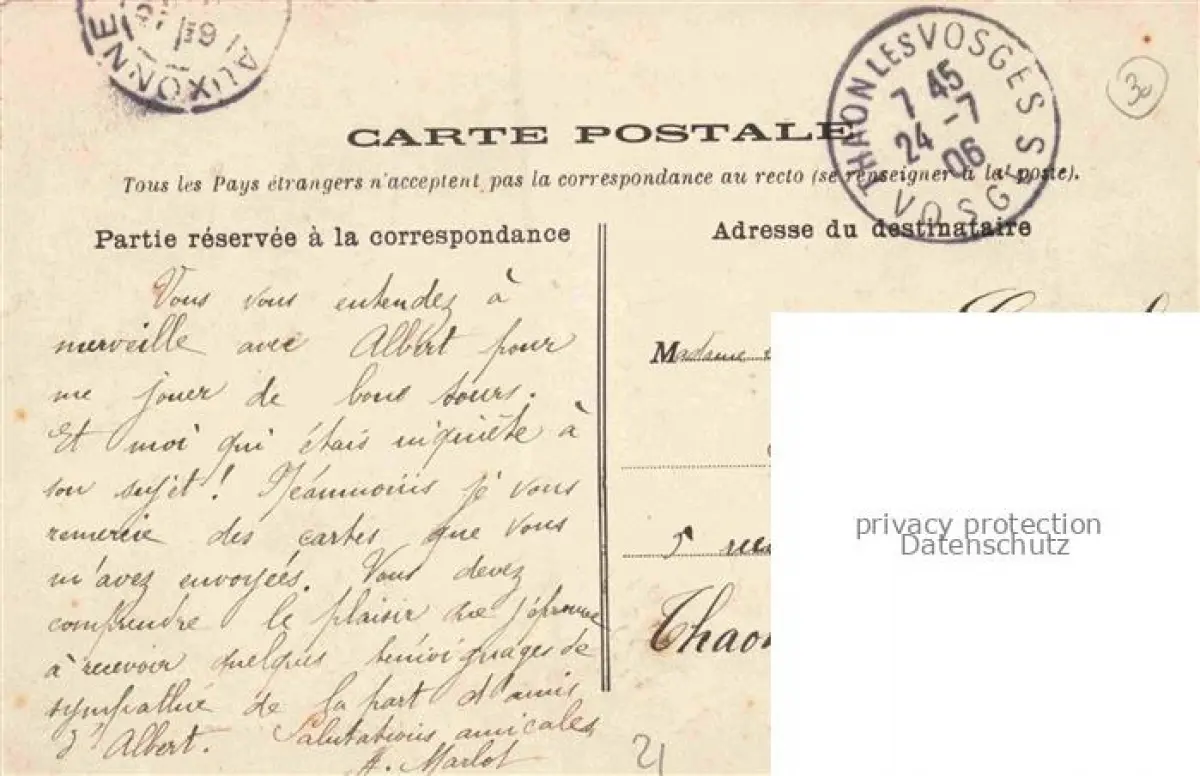 AUXONNE
THAON LES VOSGES
7 45
24 -7
06
VOSGES
30
CARTE POSTALE
Tous les Pays étrangers n'acceptent pas la correspondance au recto (se renseigner à la poste).
Partie réservée à la correspondance
Vous vous entendez à
merveille avec Albert pour
me jouer de bons tours.
Et moi qui étais inquiète à
son sujet! Néanmoins je vous
remercie des cartes que vous
m'avez envoyées. Vous devez
comprendre le plaisir que j'éprouve
à recevoir quelques témoignages de
sympathie de la part d'amis
d'Albert. Salutations amicales
A. Marlot
21
Adresse du destinataire
Madame
5 rue
Thaon
privacy protection
Datenschutz